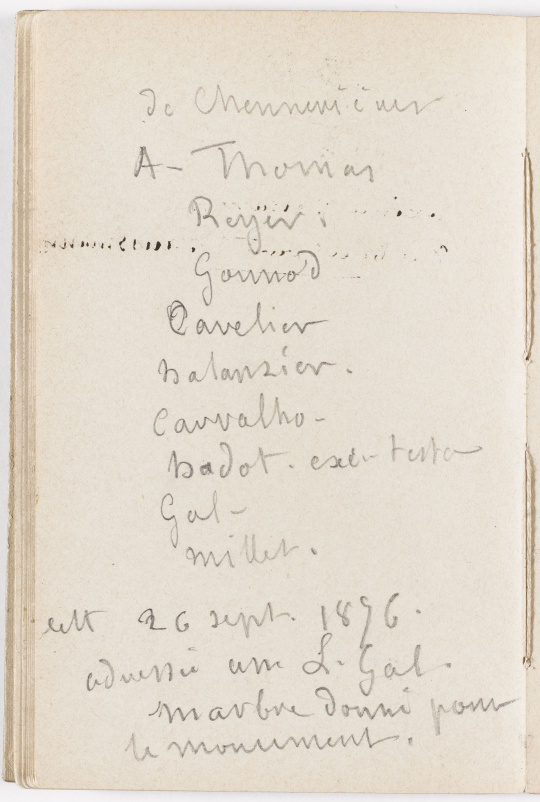 de Chennevières
A - Thomas
Reyer.
Gounod
Cavelier
halanzier.
Carvalho -
hadot. exé - testa
Gal -
millet.
lett 26 sept. 1876.
adressée a m L. Gal.
marbre donné pour
le monument.